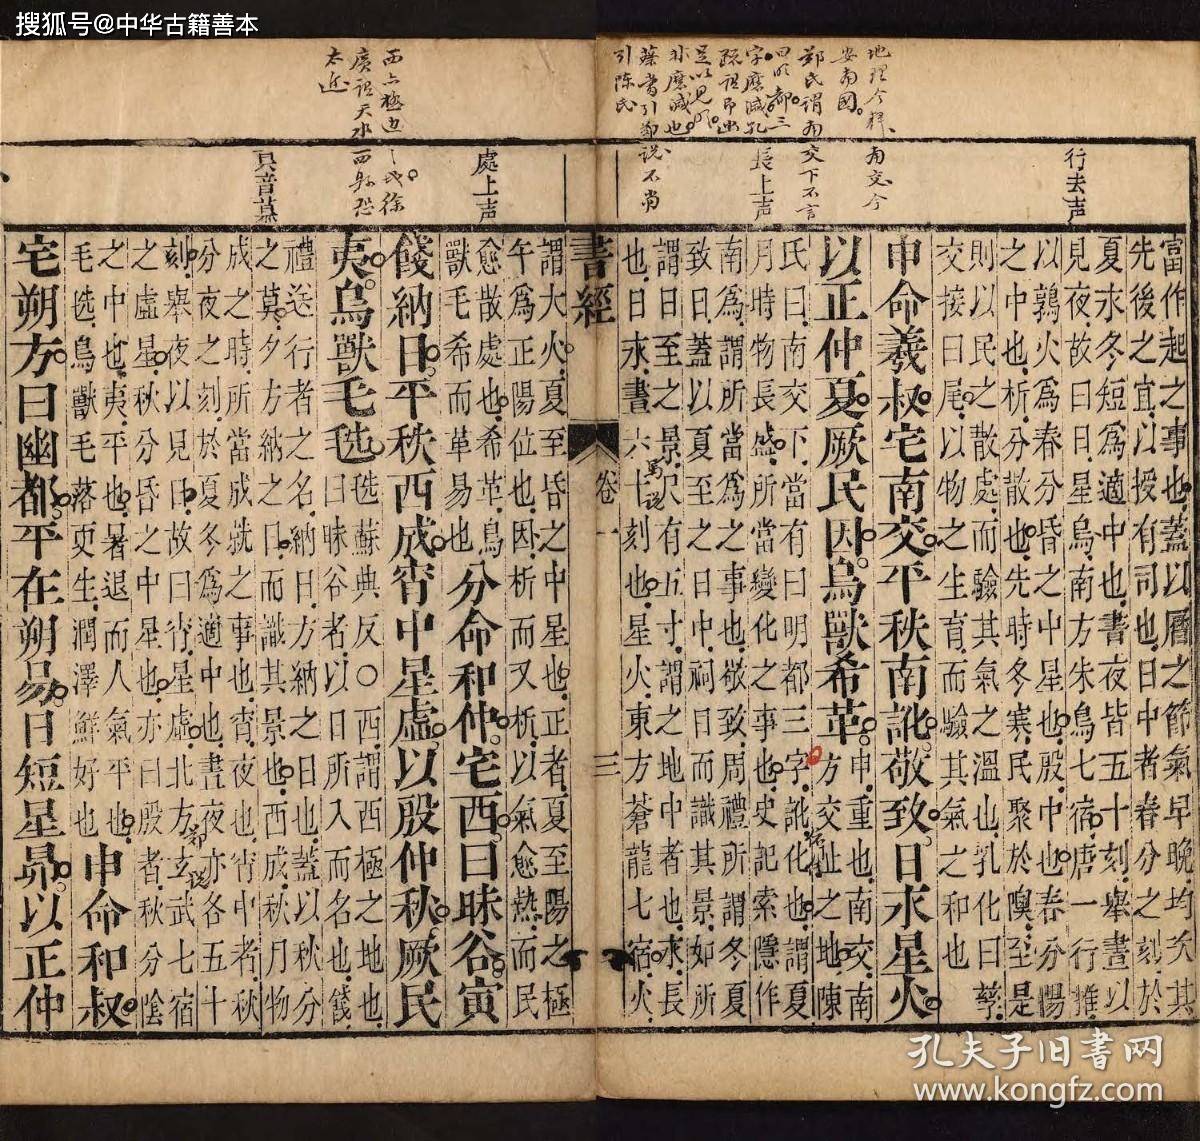 搜狐号@中华古籍善本
地理今釋南交今
安南國
鄭氏謂南交下不言
曰明都三
字摩滅孔
足以見明
非摩滅也
蔡書引鄭說不當
引陳氏
行去声
長上声
當作起之事也蓋以曆之節氣早晚均次其
先後之宜以授有司也日中者春分之刻於
夏永冬短為適中也晝夜皆五十刻舉晝以
見夜故曰日星鳥南方朱鳥七宿唐一行推
以鶉火為春分昏之中星也殷中也春分陽
之中也析分散也先時冬寒民聚於隩至是
則以民之散處而驗其氣之溫也乳化曰孳
交接曰尾以物之生育而驗其氣之和也
申命羲叔宅南交平秩南訛敬致日永星火
以正仲夏厥民因鳥獸希革申重也南交南
方交趾之地陳
氏曰南交下當有曰明都三字訛化也謂夏
月時物長盛所當變化之事也史記索隱作
南為謂所當為之事也敬致周禮所謂冬夏
致日蓋以夏至之日中祠日而識其景如所
謂日至之景尺有五寸謂之地中者也永長
也日永晝六十刻也星火東方蒼龍七宿火
書經
卷一
三
處上声
西占極邊
太近
具音慕
謂大火夏至昏之中星也正者夏至陽之極
午為正陽位也因析而又析以氣愈熱而民
愈散處也希革鳥
獸毛希而革易也分命和仲宅西曰昧谷寅
餞納日平秩西成宵中星虛以殷仲秋厥民
夷鳥獸毛毨毨蘇典反○西謂西極之地也
曰昧谷名以日所入而名也餞
禮送行者之名納日方納之日也蓋以秋分
之莫夕方納之日而識其景也西成秋月物
成之時所當成就之事也宵夜也宵中者秋
分夜之刻於夏冬為適中也晝夜亦各五十
刻舉夜以見日故曰宵星虛北方玄武七宿
之虛星秋分昏之中星也亦曰殷者秋分陰
之中也夷平也暑退而人氣平也
毛毨鳥獸毛落更生潤澤鮮好也申命和叔
宅朔方曰幽都平在朔易日短星昴以正仲
孔夫子旧书网
www.kongfz.com